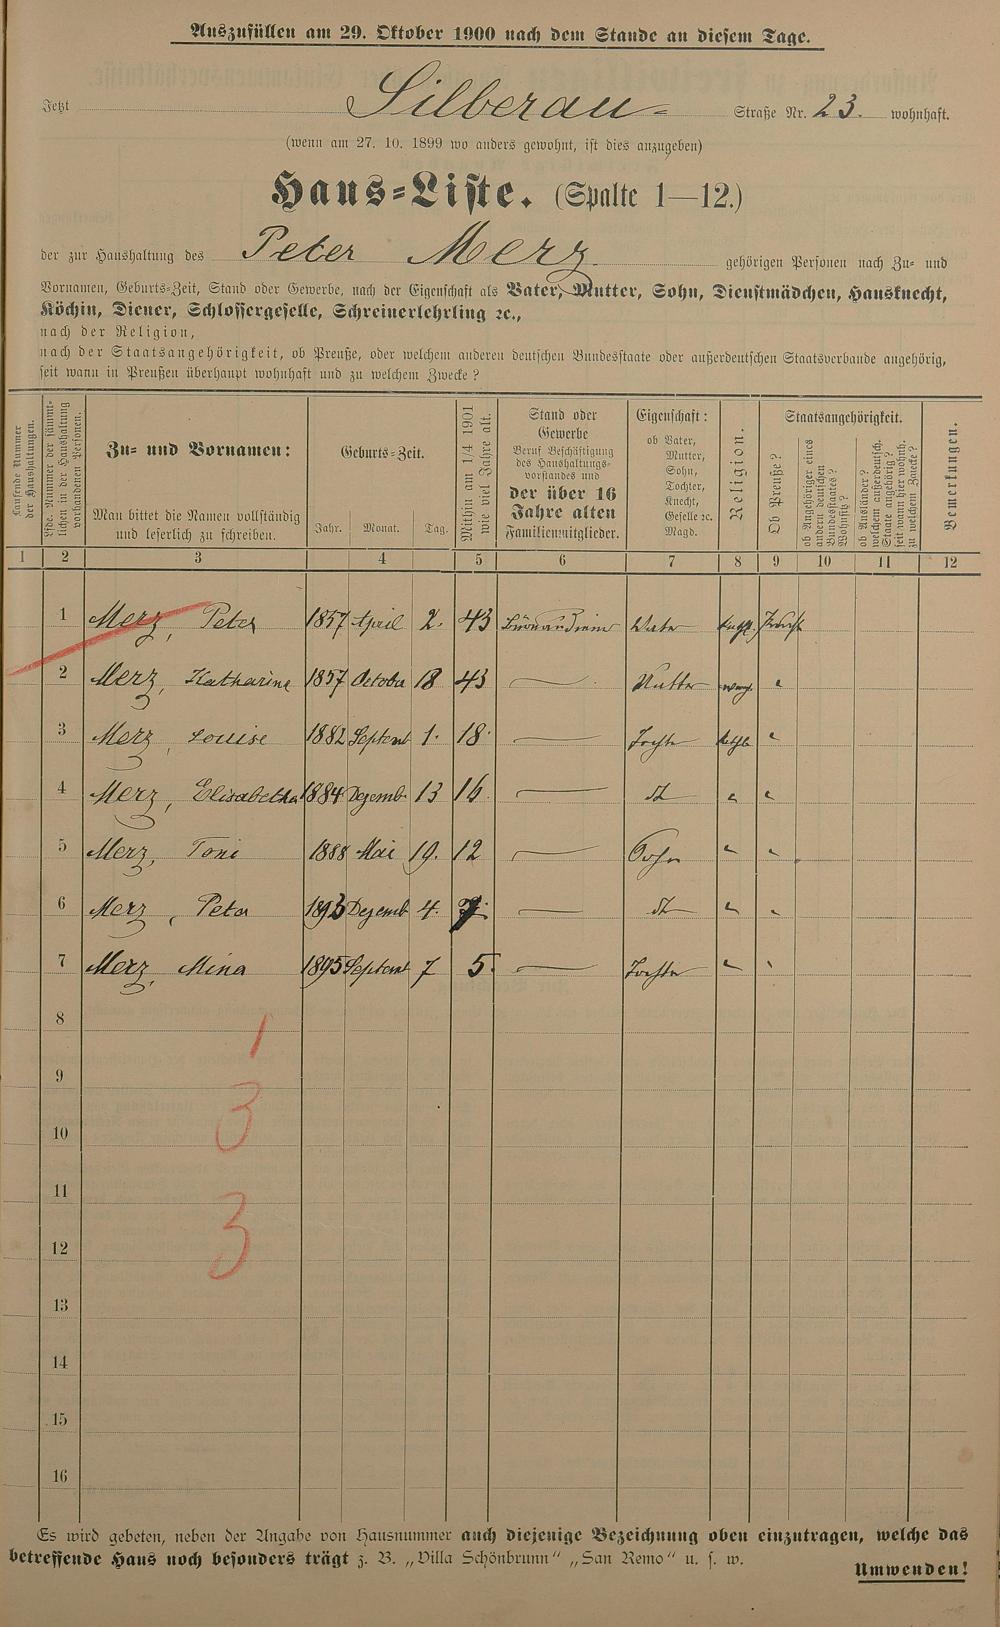 Auszufüllen am 29. Oktober 1900 nach dem Stande an diesem Tage.
Jetzt Silberau- Straße Nr. 23. wohnhaft.
(wenn am 27. 10. 1899 wo anders gewohnt, ist dies anzugeben)
Haus-Liste. (Spalte 1—12.)
der zur Haushaltung des Peter Merz gehörigen Personen nach Zu- und
Vornamen, Geburts-Zeit, Stand oder Gewerbe, nach der Eigenschaft als Vater, Mutter, Sohn, Dienstmädchen, Hausknecht,
Köchin, Diener, Schlossergeselle, Schreinerlehrling ꝛc.,
nach der Religion,
nach der Staatsangehörigkeit, ob Preuße, oder welchem anderen deutschen Bundesstaate oder außerdeutschen Staatsverbande angehörig,
seit wann in Preußen überhaupt wohnhaft und zu welchem Zwecke?
Laufende Nummer
der Haushaltungen.
Lfde. Nummer der sämmt-
lichen in der Haushaltung
vorhandenen Personen.
Zu- und Vornamen:
Man bittet die Namen vollständig
und leserlich zu schreiben.
Geburts-Zeit.
Jahr. Monat. Tag.
Mithin am 1/4 1901
wie viel Jahre alt.
Stand oder
Gewerbe
Beruf Beschäftigung
des Haushaltungs-
vorstandes und
der über 16
Jahre alten
Familienmitglieder.
Eigenschaft:
ob Vater,
Mutter,
Sohn,
Tochter,
Knecht,
Geselle ꝛc.
Magd.
Religion.
Staatsangehörigkeit.
Ob Preuße?
ob Angehöriger eines
andern deutschen
Bundesstaates?
Wohnsitz?
ob Ausländer?
welchem außerdeutsch.
Staate angehörig?
seit wann hier wohnh.
zu welchem Zwecke?
Bemerkungen.
1 2 3 4 5 6 7 8 9 10 11 12
1 Merz, Peter 1857 April 2. 43 Bürodiener Vater
2 Merz, Katharina 1857 October 18 43 — Mutter evang. "
3 Merz, Louise 1882 Septemb 1. 18 — Tochter "
4 Merz, Elisabetha 1884 Dezemb 13 16 — dto " "
5 Merz, Toni 1888 Mai 19. 12 — Sohn " "
6 Merz, Peter 1893 Dezemb 4. 7. — dto " "
7 Merz, Mina 1895 Septemb 7 5. — Tochter " "
8
1
9
3
10
11
3
12
13
14
15
16
Es wird gebeten, neben der Angabe von Hausnummer auch diejenige Bezeichnung oben einzutragen, welche das
betreffende Haus noch besonders trägt z. B. „Villa Schönbrunn“ „San Remo“ u. s. w.
Umwenden!